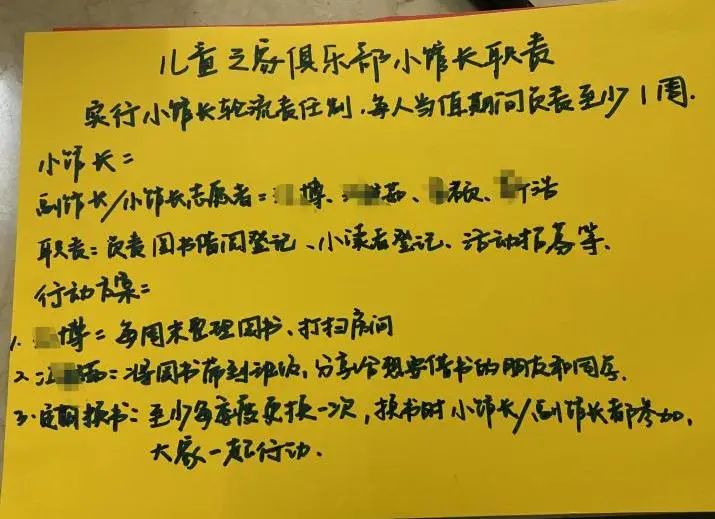 儿童之家俱乐部小馆长职责
实行小馆长轮流责任制,每人当值期间负责至少1周.
小馆长:
副馆长/小馆长志愿者:博、茹、颀、浩
职责:负责图书借阅登记、小读者登记、活动招募等.
行动方案:
1.博:每周末整理图书、打扫房间
2.江茹:将图书带到班级,分享给想要借书的朋友和同学.
3.定期换书:至少每季度更换一次,换书时小馆长/副馆长都参加,
大家一起行动.